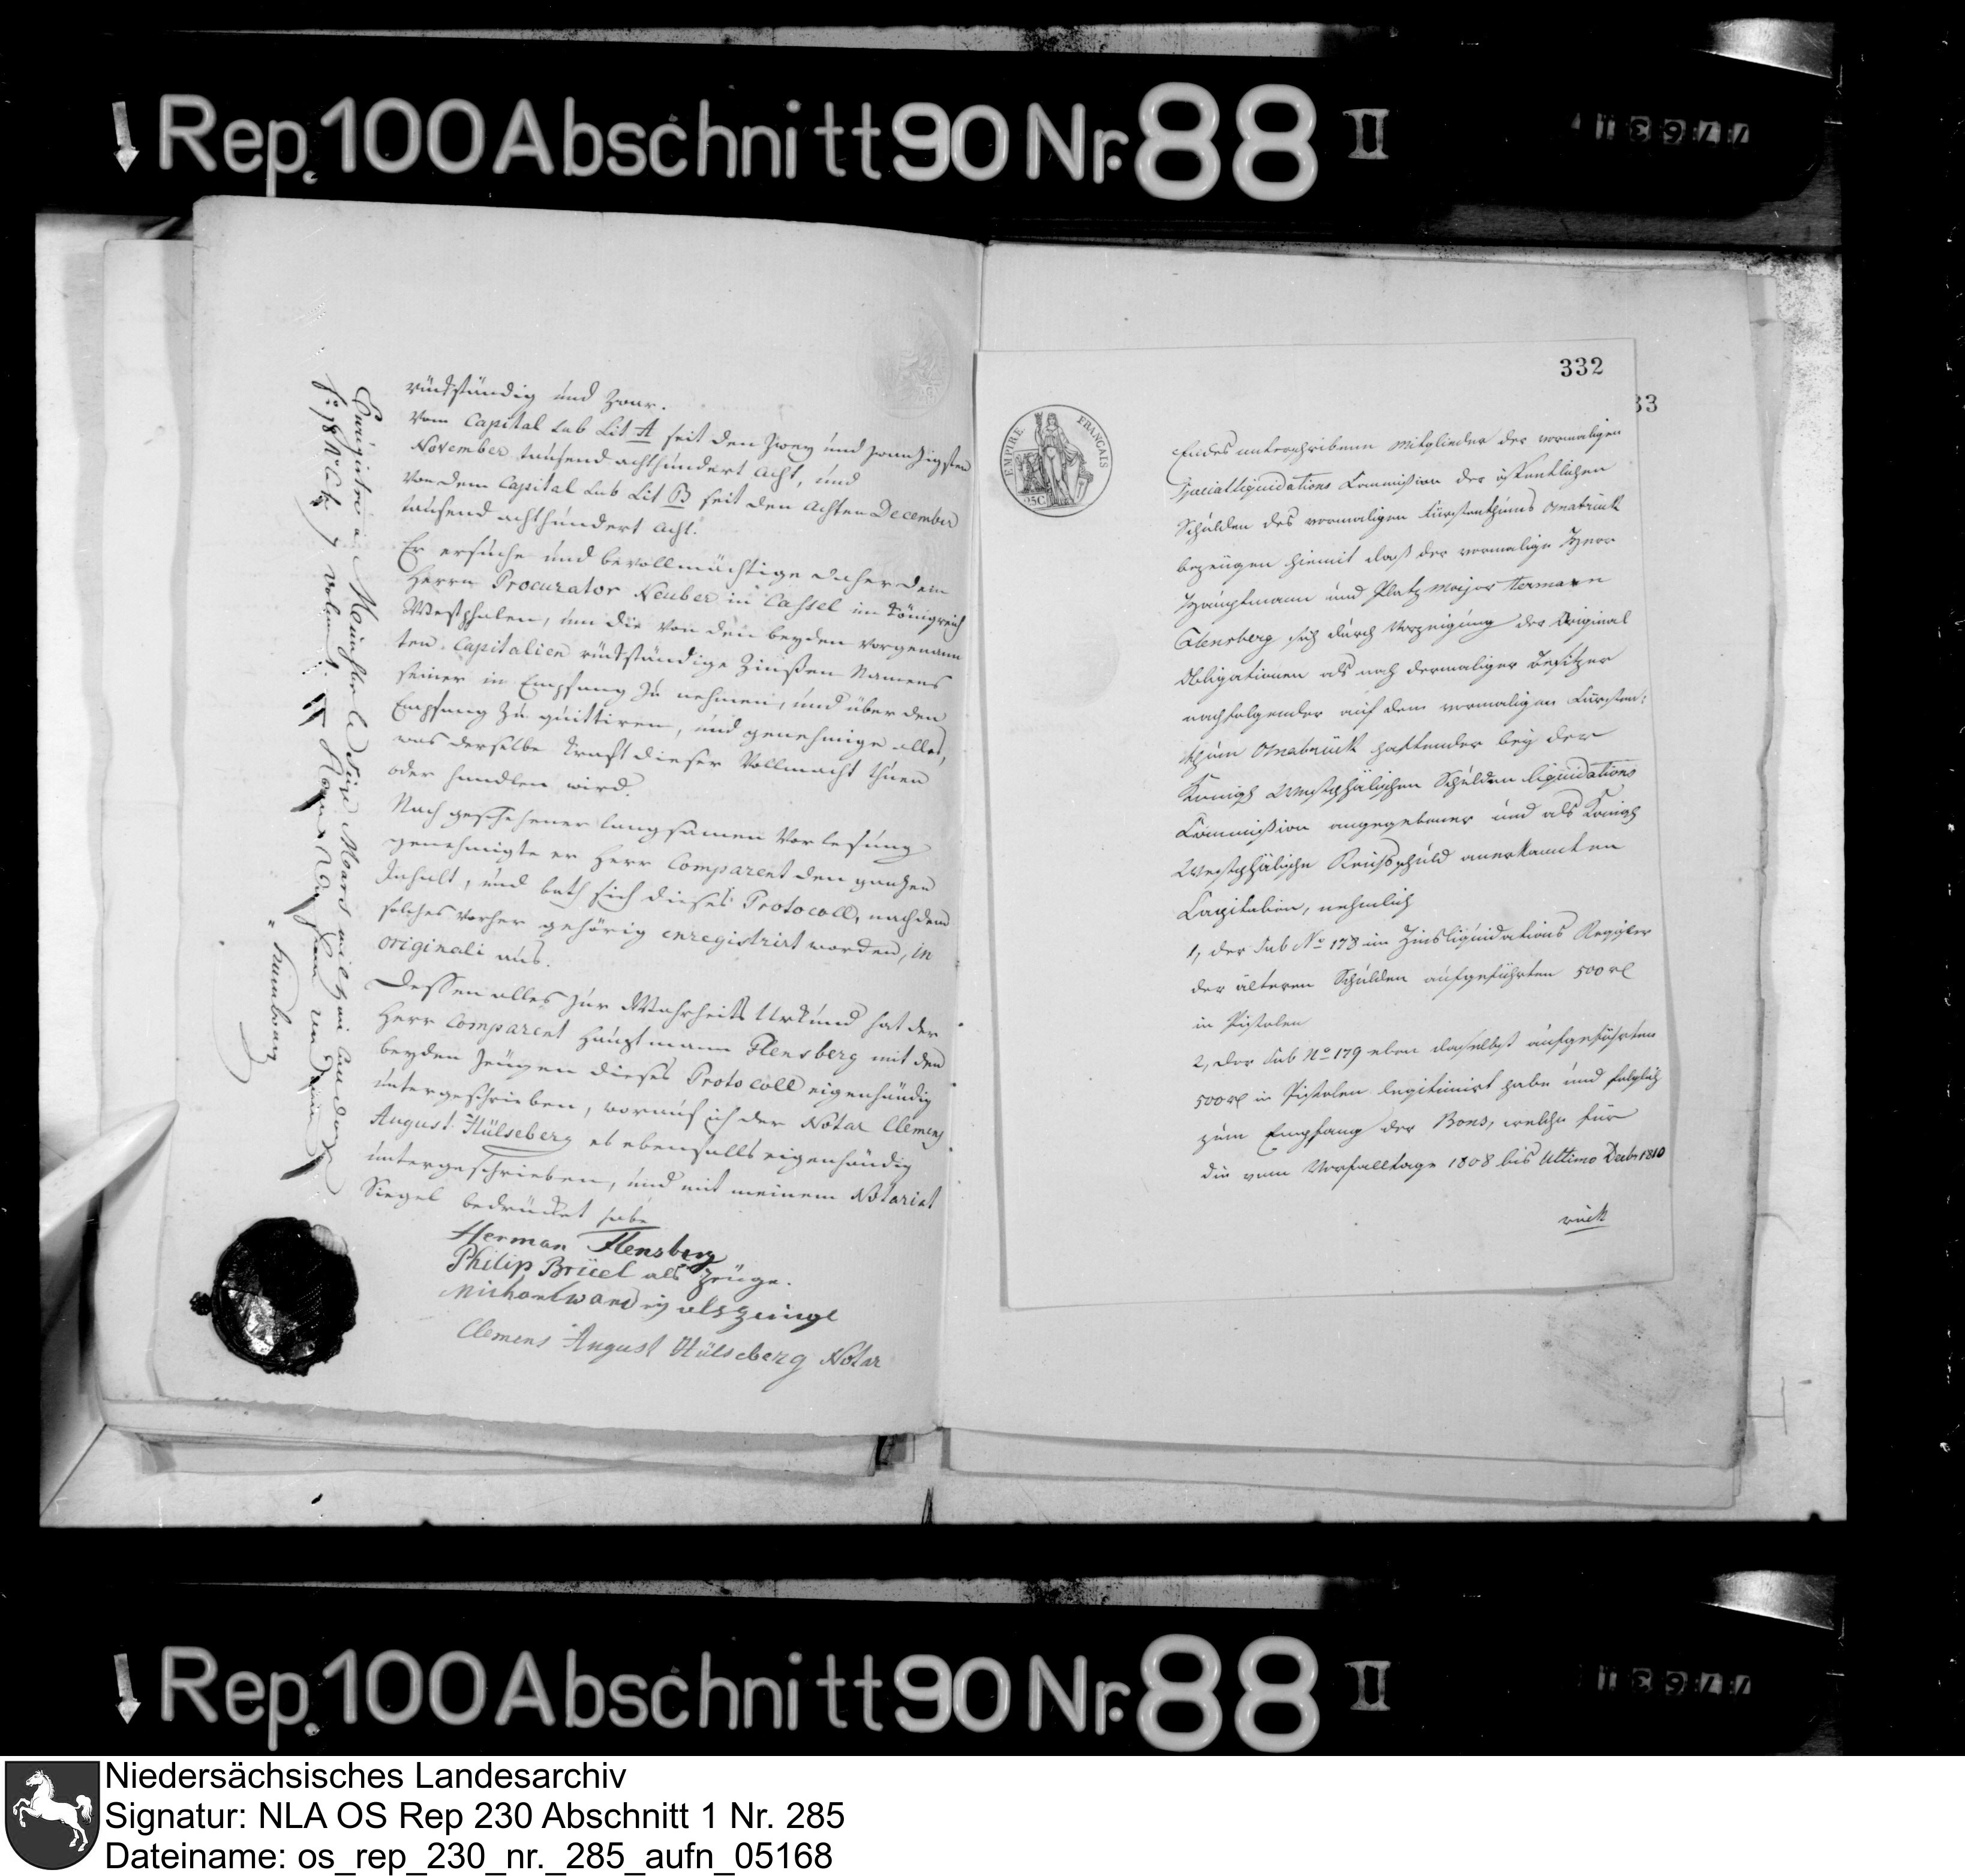 Rep. 100 Abschnitt 90 Nr. 88 II
rückständig und zwar.
Vom Capital sub Lit A seit den zwey und zwanzigsten
November tausend achthundert acht, und
von dem Capital sub Lit B seit den achten December
tausend achthundert acht.
Er ersuche und bevollmächtige daher den
Herrn Procurator Neuber in Cassel im Königreich
Westphalen, um die von den beyden vorgenann
ten Capitalien rückständige Zinßen Namens
seiner in Empfang zu nehmen, und über den
Empfang zu quittiren, und genehmige alles,
was derselbe kraft dieser Vollmacht thuen
oder handlen wird.
Nach geschehener langsamen Vorlesung
genehmigte er Herr Comparent den ganzen
Inhalt, und bath sich dieses Protocoll, nachdem
solches vorher gehörig enregistrirt worden, in
originali aus.
Dessen alles zur Wahrheits Urkund hat der
Herr Comparent Hauptmann Flensberg mit den
beyden Zeugen dieses Protocoll eigenhändig
untergeschrieben, worauf ich der Notar Clemens
August Hülseberg es ebenfalls eigenhändig
untergeschrieben, und mit meinem Notariat
Siegel bedrücket habe
Herman Flensberg
Philip Brücel als Zeuge.
als zeuge
Clemens August Hülseberg Notar
332
33
EMPIRE FRANÇAIS
25C
Endes unterschriebene Mitglieder der vormaligen
Specialliquidations Commißion der öffentlichen
Schulden des vormaligen Fürstenthums Osnabrück
bezeugen hiemit daß der vormalige Herr
Hauptmann und Platz Major Herman
Flensberg sich durch Vorzeigung der Original
Obligationen als noch dermaliger Besitzer
nachfolgender auf dem vormaligen Fürsten:
thum Osnabrück haftender bey der
Königl Westphälischen Schulden liquidations
Commißion angegebener und als Königl
Westphälische Reichsschuld anerkannten
Capitalien, nehmlich
1, der sub No 178 im Zinsliquidations Register
der älteren Schulden aufgeführten 500 rl
in Pistolen
2, der sub No 179 eben daselbst aufgeführten
500 rl in Pistolen legitimirt habe und folglich
zum Empfang der Bons, welche für
die vom Verfalltage 1808 bis Ultimo Decbr 1810
rück
Rep. 100 Abschnitt 90 Nr. 88 II
Niedersächsisches Landesarchiv
Signatur: NLA OS Rep 230 Abschnitt 1 Nr. 285
Dateiname: os_rep_230_nr._285_aufn_05168